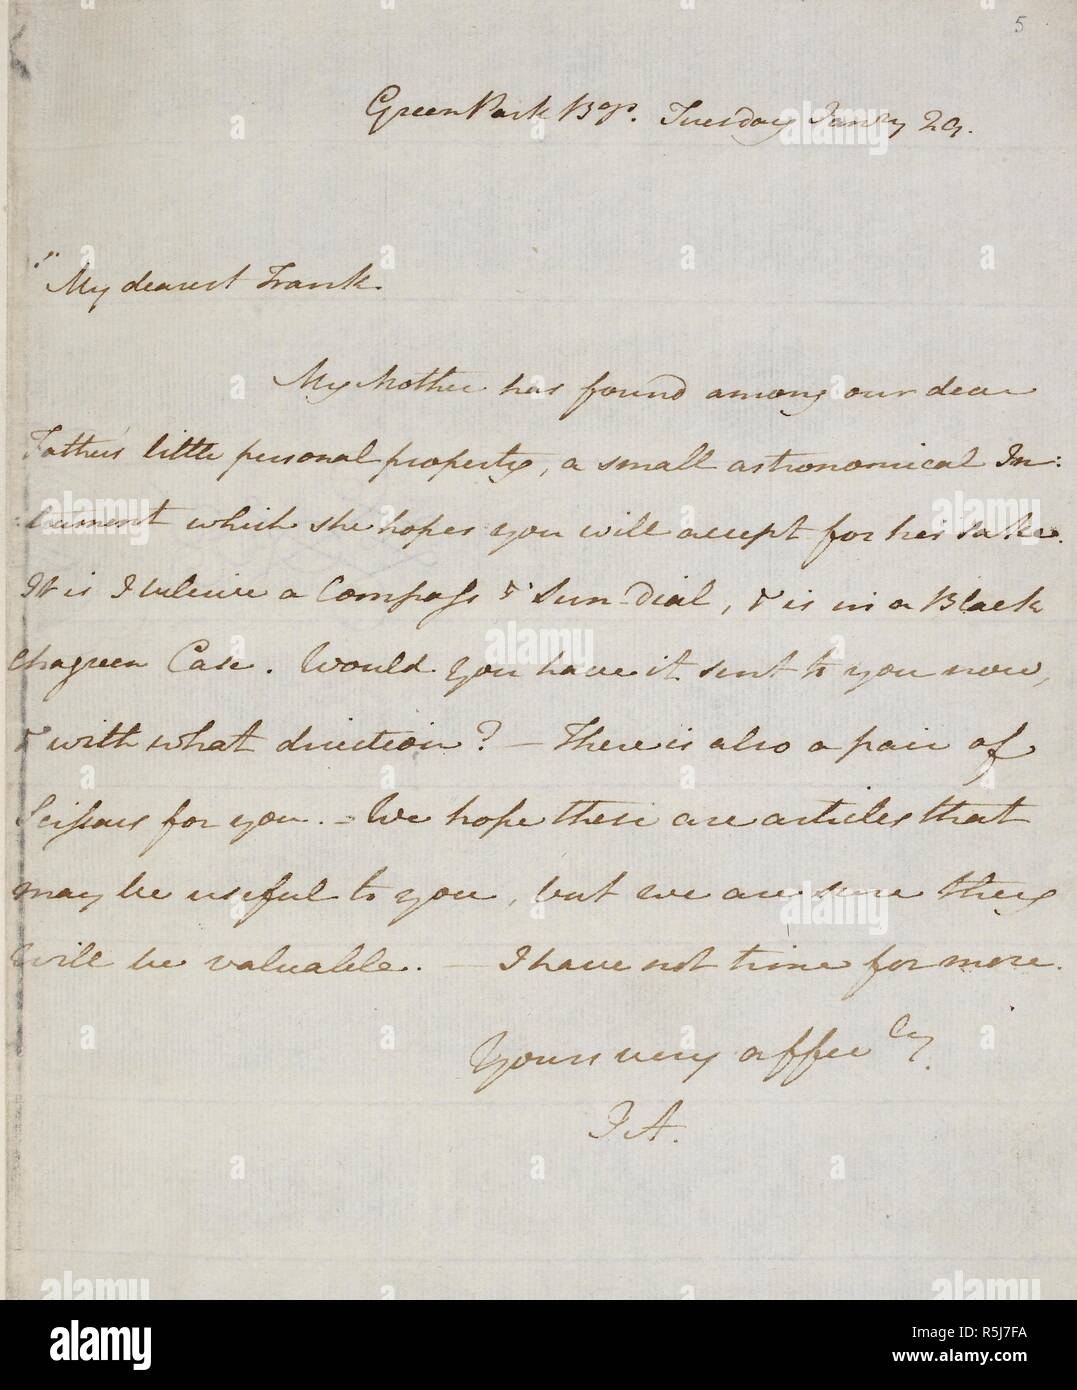 5
Green Park Bgs. Tuesday Janry 29.
"My dearest Frank.
My Mother has found among our dear
Father's little personal property, a small astronomical In:
:strument which she hopes you will accept for his sake.
It is I believe a Compass & Sun-dial, & is in a Black
Chagreen Case. Would you have it sent to you now,
& with what direction? — There is also a pair of
Scissars for you. — We hope these are articles that
may be useful to you, but we are sure they
will be valuable. — I have not time for more.
Yours very affecly.
J A.
alamy
Image ID: R5J7FA
www.alamy.com